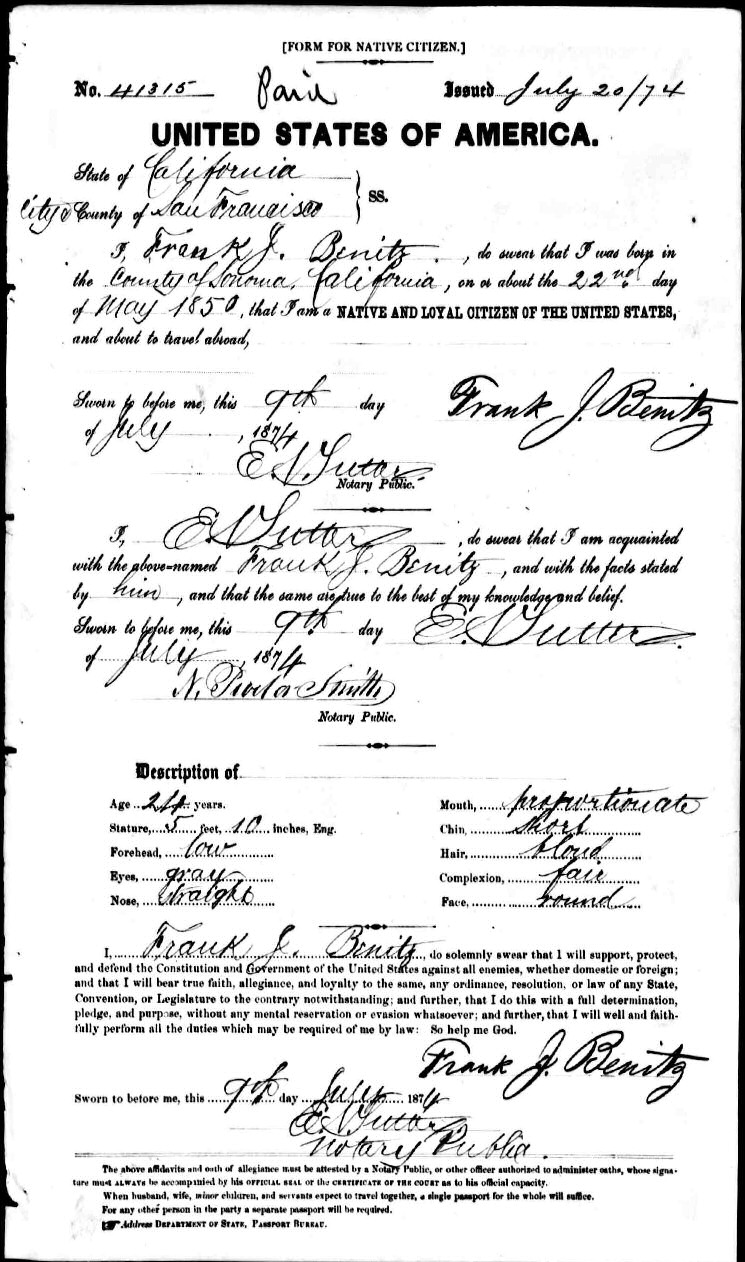 [FORM FOR NATIVE CITIZEN.]
No. 41315 Paid Issued July 20/74
UNITED STATES OF AMERICA.
State of California
City & County of San Francisco } SS.
I, Frank J. Benitz, do swear that I was born in
the County of Sonoma, California, on or about the 22nd day
of May 1850, that I am a NATIVE AND LOYAL CITIZEN OF THE UNITED STATES,
and about to travel abroad,
Sworn to before me, this 9th day Frank J. Benitz
of July, 1874
E. V. Sutter
Notary Public.
I, E. V. Sutter, do swear that I am acquainted
with the above-named Frank J. Benitz, and with the facts stated
by him, and that the same are true to the best of my knowledge and belief.
Sworn to before me, this 9th day E. V. Sutter.
of July, 1874
N. Proctor Smith
Notary Public.
Description of
Age 24 years. Mouth, proportionate
Stature, 5 feet, 10 inches, Eng. Chin, short
Forehead, low Hair, blond
Eyes, gray Complexion, fair
Nose, straight Face, round
I, Frank J. Benitz, do solemnly swear that I will support, protect,
and defend the Constitution and Government of the United States against all enemies, whether domestic or foreign;
and that I will bear true faith, allegiance, and loyalty to the same, any ordinance, resolution, or law of any State,
Convention, or Legislature to the contrary notwithstanding; and further, that I do this with a full determination,
pledge, and purpose, without any mental reservation or evasion whatsoever; and further, that I will well and faith-
fully perform all the duties which may be required of me by law: So help me God.
Frank J. Benitz
Sworn to before me, this 9th day July 1874
E. V. Sutter
Notary Public.
The above affidavits and oath of allegiance must be attested by a Notary Public, or other officer authorized to administer oaths, whose signa-
ture must ALWAYS be accompanied by his OFFICIAL SEAL or the CERTIFICATE OF THE COURT as to his official capacity.
When husband, wife, minor children, and servants expect to travel together, a single passport for the whole will suffice.
For any other person in the party a separate passport will be required.
☛ Address DEPARTMENT OF STATE, PASSPORT BUREAU.